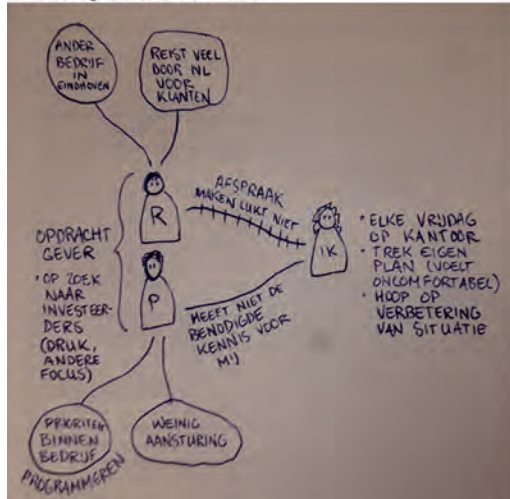 ANDER
BEDRIJF
IN
EINDHOVEN
REIST VEEL
DOOR NL
VOOR
KLANTEN
R
AFSPRAAK
MAKEN LUKT NIET
IK
• ELKE VRIJDAG
OP KANTOOR
• TREK EIGEN
PLAN (VOELT
ONCOMFORTABEL)
• HOOP OP
VERBETERING
VAN SITUATIE
OPDRACHT
GEVER
• OP ZOEK
NAAR
INVESTEER-
DERS
(DRUK,
ANDERE
FOCUS)
P
HEEFT NIET DE
BENODIGDE
KENNIS VOOR
MIJ
PRIORITEIT
BINNEN
BEDRIJF
PROGRAMMEREN
WEINIG
AANSTURING